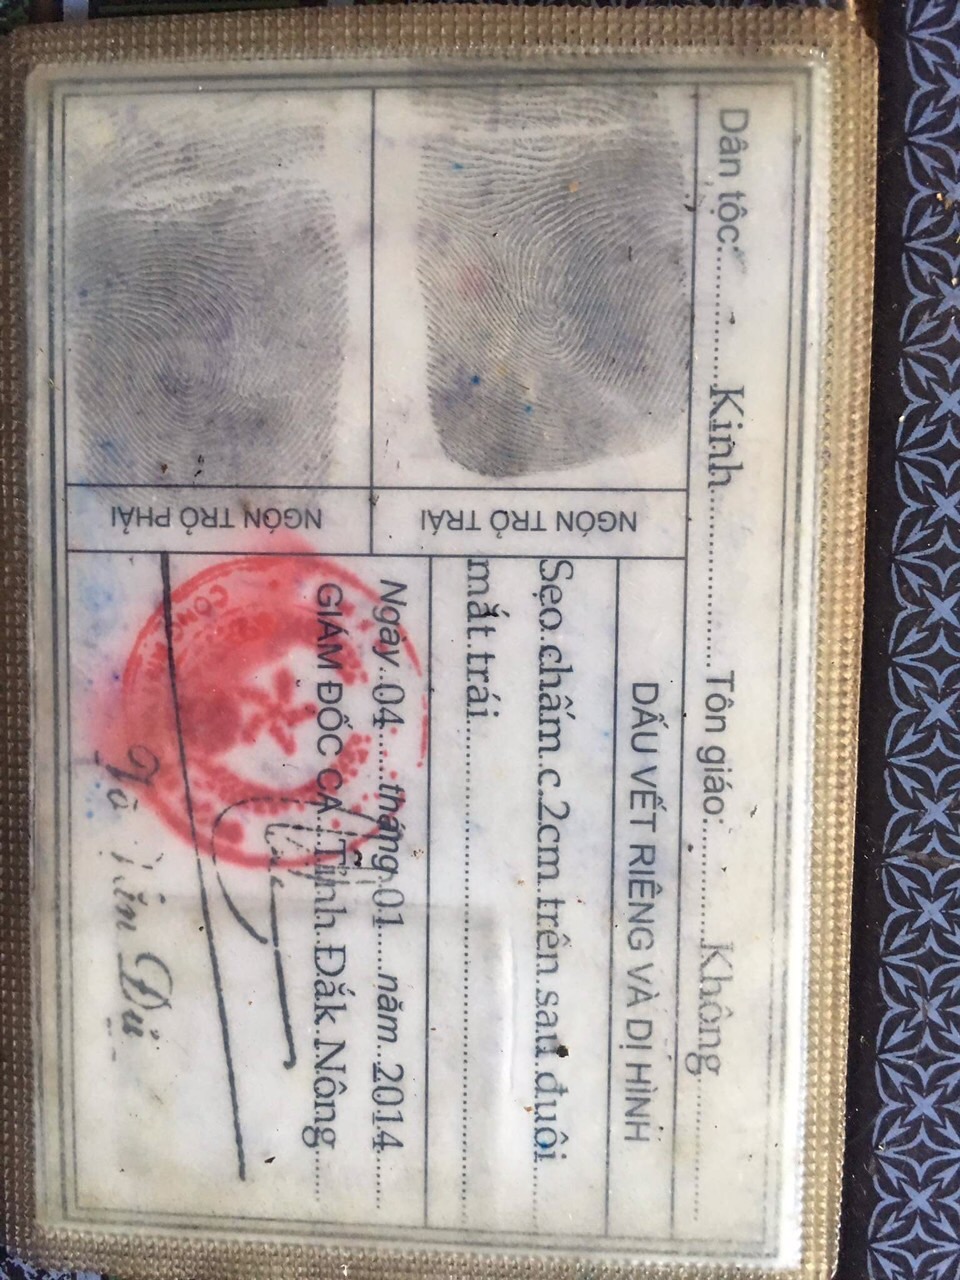 Dân tộc:........Kinh............Tôn giáo:........Không........
NGÓN TRỎ TRÁI
NGÓN TRỎ PHẢI
DẤU VẾT RIÊNG VÀ DỊ HÌNH
Sẹo.chấm.c.2cm.trên.sau.đuôi
mắt.trái..............
Ngày..04.....tháng.01....năm..2014....
GIÁM ĐỐC CA.Tỉnh.Đắk.Nông....